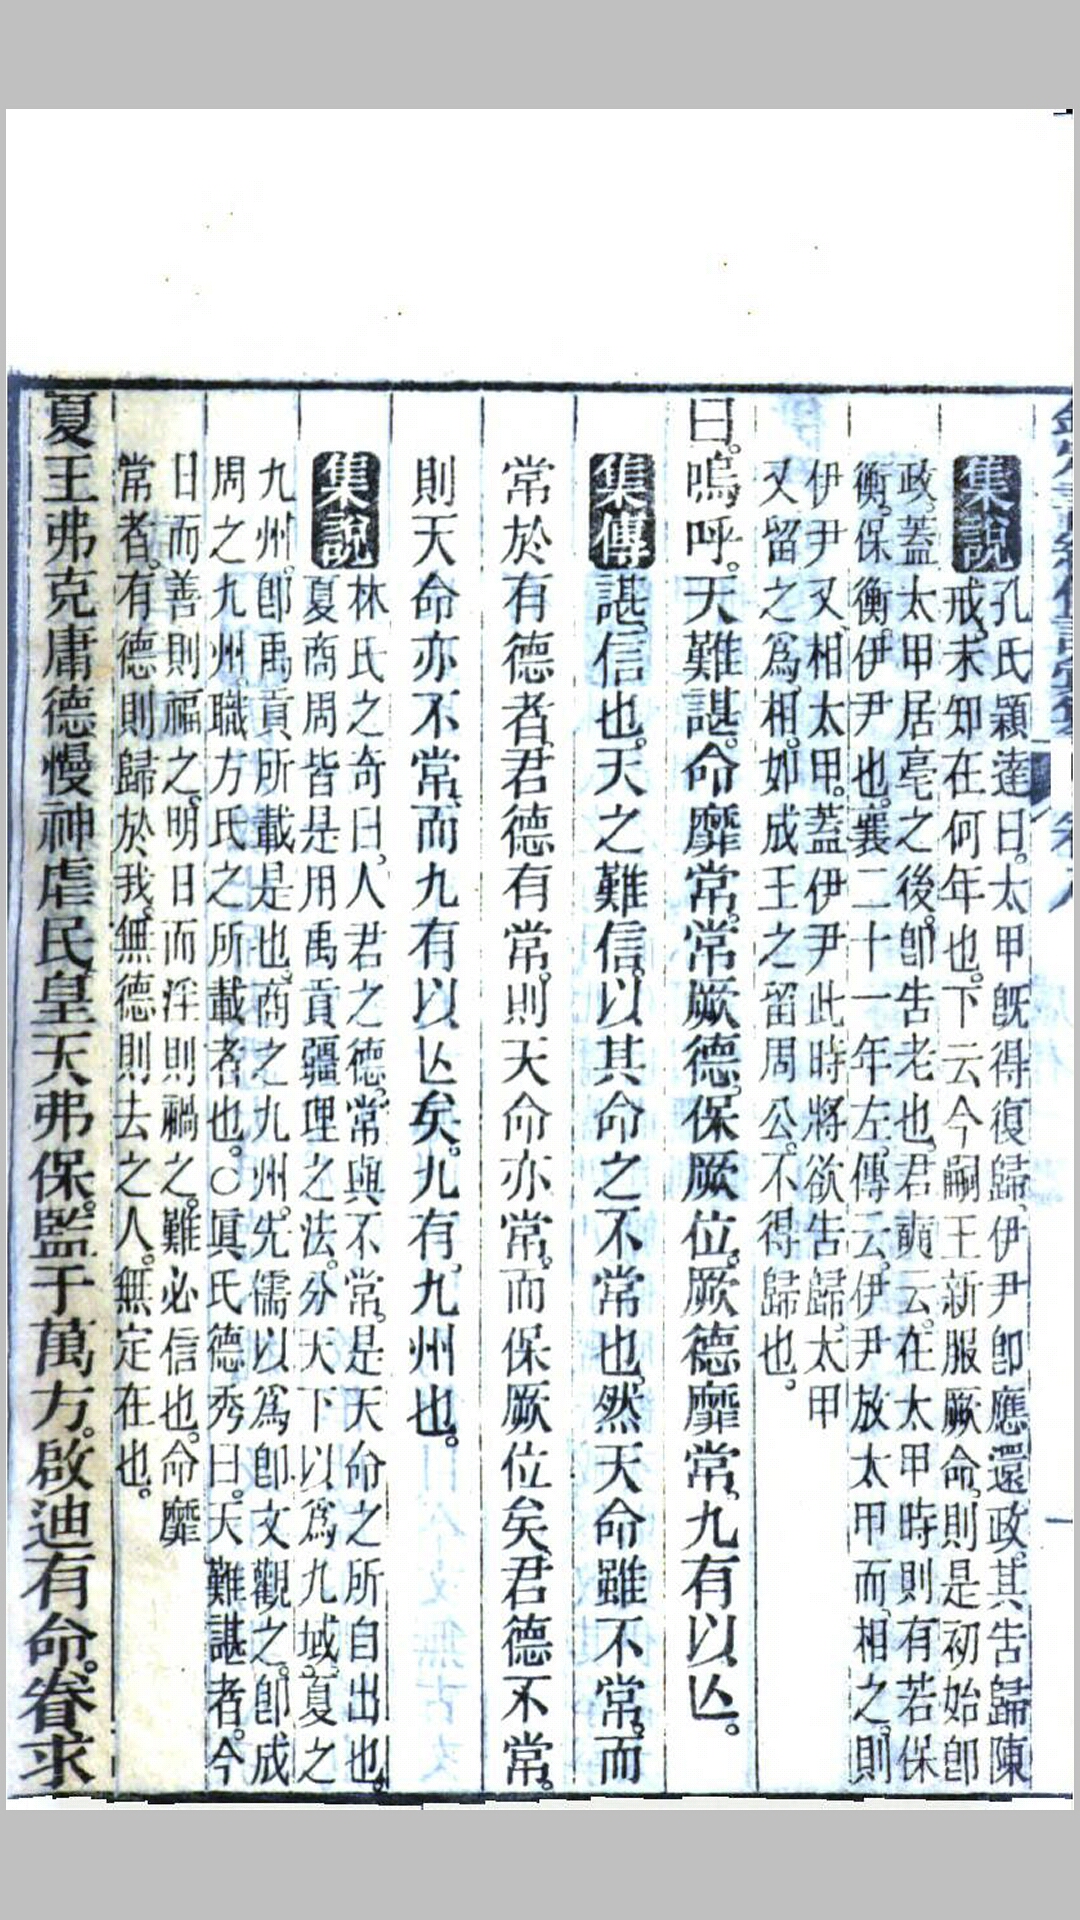 集說
孔氏穎達曰。太甲旣得復歸、伊尹卽應還政。其告歸陳
戒、未知在何年也。下云今嗣王新服厥命、則是初始卽
政。蓋太甲居亳之後、卽告老也。君奭云。在太甲時則有若保
衡。保衡、伊尹也。襄二十一年左傳云。伊尹放太甲而相之、則
伊尹又相太甲。蓋伊尹此時將欲告歸。太甲
又留之爲相。如成王之留周公。不得歸也。
曰。嗚呼。天難諶。命靡常。常厥德、保厥位。厥德靡常、九有以亾。
集傳
諶、信也。天之難信。以其命之不常也、然天命雖不常。而
常於有德者、君德有常。則天命亦常。而保厥位矣、君德不常。
則天命亦不常、而九有以亾矣。九有、九州也。
集說
林氏之奇曰、人君之德、常與不常。是天命之所自出也。
夏商周皆是用禹貢疆理之法。分天下以爲九域。夏之
九州。卽禹貢所載是也、商之九州。先儒以爲卽文觀之。卽成
周之九州職方氏之所載者也。○眞氏德秀曰。天難諶者。今
日而善則福之。明日而淫則禍之。難必信也。命靡
常者。有德則歸於我。無德則去之人。無定在也。
夏王弗克庸德慢神虐民皇天弗保。監于萬方。啟迪有命。眷求